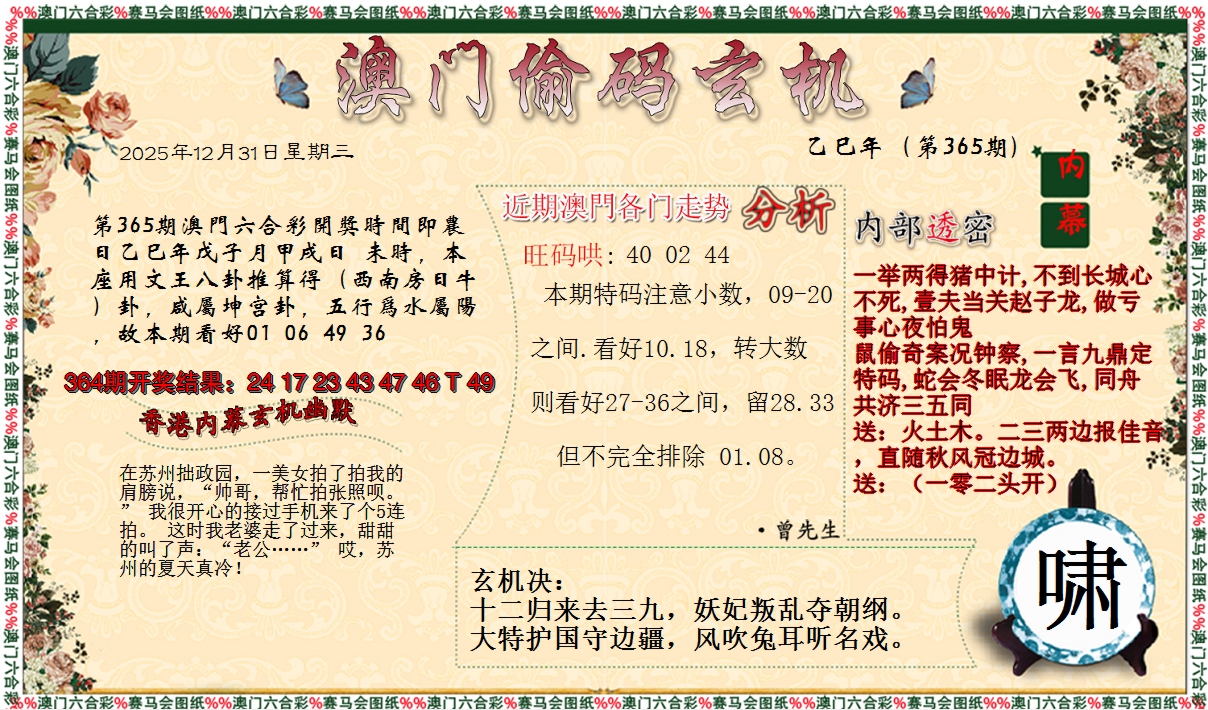 %%澳门六合彩%赛马会图纸%%澳门六合彩%赛马会图纸%%澳门六合彩%赛马会图纸%%澳门六合彩%赛马会图纸%%澳门六合彩%赛马会图纸%%澳门六合彩%赛马会图纸%%
澳门偷码玄机
2025年12月31日星期三
乙巳年（第365期）
内幕
第365期澳門六合彩開獎時間即農
日乙巳年戊子月甲戌日 未時，本
座用文王八卦推算得（西南房日牛
）卦，咸屬坤宫卦，五行爲水屬陽
，故本期看好01 06 49 36
364期开奖结果：24 17 23 43 47 46 T 49
香港内幕玄机幽默
在苏州拙政园，一美女拍了拍我的
肩膀说，“帅哥，帮忙拍张照呗。
” 我很开心的接过手机来了个5连
拍。 这时我老婆走了过来，甜甜
的叫了声：“老公……” 哎，苏
州的夏天真冷！
近期澳門各门走势 分析
旺码哄：40 02 44
本期特码注意小数，09-20
之间.看好10.18，转大数
则看好27-36之间，留28.33
但不完全排除 01.08。
·曾先生
内部透密
一举两得猪中计,不到长城心
不死,壹夫当关赵子龙,做亏
事心夜怕鬼
鼠偷奇案况钟察,一言九鼎定
特码,蛇会冬眠龙会飞,同舟
共济三五同
送：火土木。二三两边报佳音
，直随秋风冠边城。
送：（一零二头开）
玄机决：
十二归来去三九，妖妃叛乱夺朝纲。
大特护国守边疆，风吹兔耳听名戏。
啸
%%澳门六合彩%赛马会图纸%%澳门六合彩%赛马会图纸%%澳门六合彩%赛马会图纸%%澳门六合彩%赛马会图纸%%澳门六合彩%赛马会图纸%%澳门六合彩%赛马会图纸%%